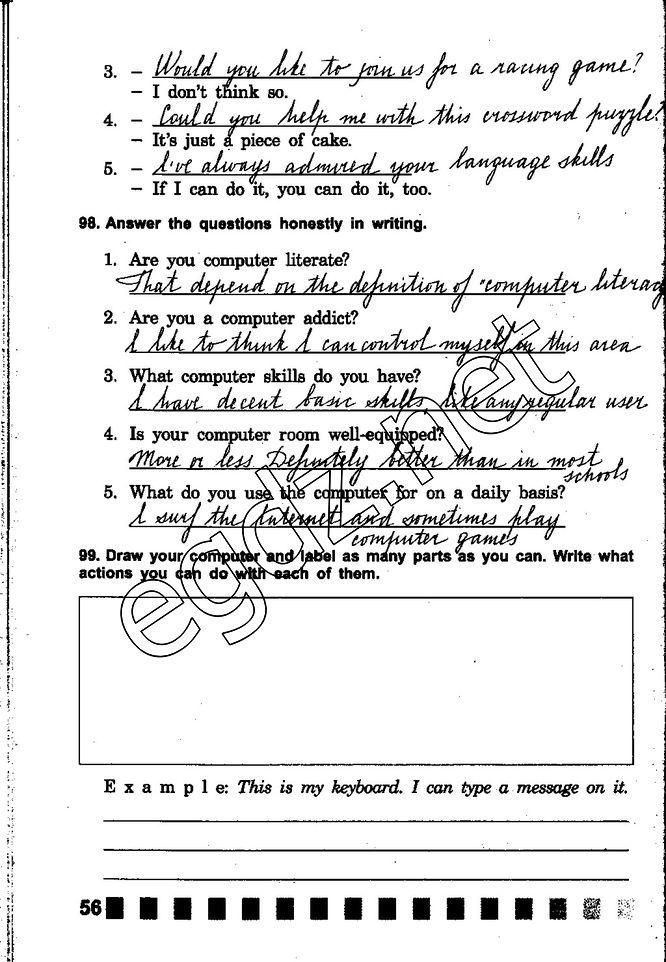 3. – Would you like to join us for a racing game?
– I don't think so.
4. – Could you help me with this crossword puzzle?
– It's just a piece of cake.
5. – I've always admired your language skills
– If I can do it, you can do it, too.
98. Answer the questions honestly in writing.
1. Are you computer literate?
That depend on the definition of "computer literacy
2. Are you a computer addict?
I like to think I can control myself on this area
3. What computer skills do you have?
I have decent basic skills, like any regular user
4. Is your computer room well-equipped?
More or less Definitely better than in most
schools
5. What do you use the computer for on a daily basis?
I surf the Internet and sometimes play
computer games
99. Draw your computer and label as many parts as you can. Write what
actions you can do with each of them.
egdz.net
E x a m p l e: This is my keyboard. I can type a message on it.
56